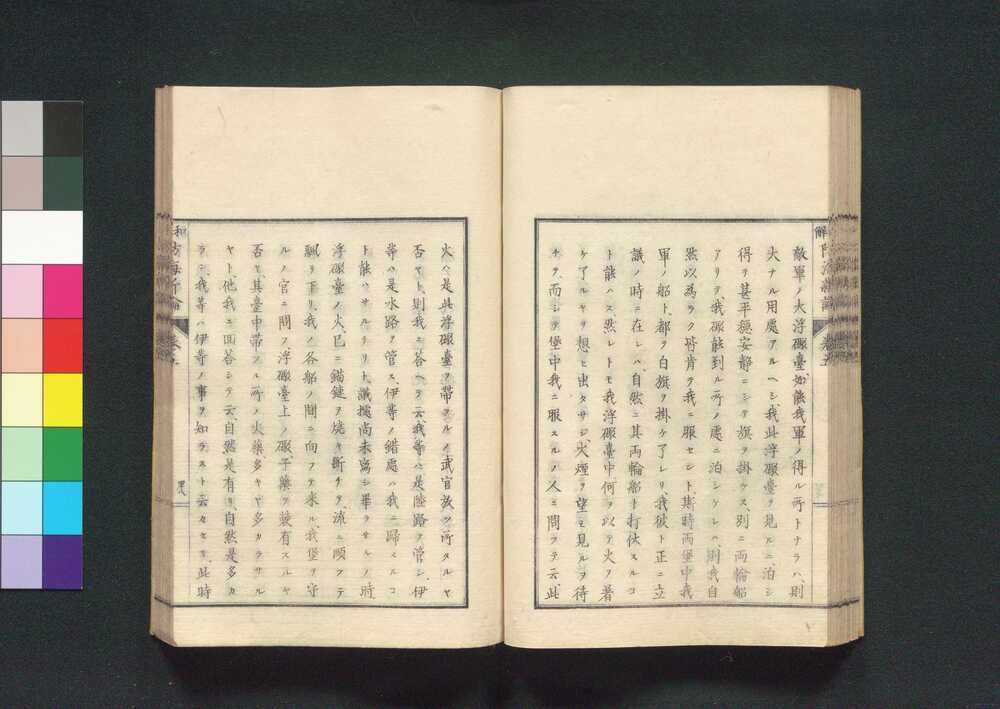 敵軍ノ大浮礮臺如能我軍ノ得ル所トナラハ、則
大ナル用處アルヘシ、我此浮礮臺ヲ見ルニ泊シ
得ヲ甚平穏安静ニシテ旗ヲ掛ケス、別ニ両輪船
アリテ我礮敲到ル所ノ處ニ泊シケレハ、則我自
然以為ラク皆肯ヲ我ニ服セシト、斯時両堡中我
軍ノ船ト、都ヲ白旗ヲ掛ケ了レリ、我彼ト正ニ立
議ノ時ニ在レハ、自然ニ其両輪船ト打仗スルコ
ト能ハス、然レトモ我浮礮臺中何ヲ以テ火ヲ著
ケ了ルヤヲ想ヒ出タサシ、火煙ヲ望ミ見ルヲ待
チヲ、而シテ堡中我ニ服スルノ人ニ問ヲテ云、此
火ハ是此浮礮臺ヲ帯ヲルノ武官放ツ所タルヤ
否ヤト、則我ニ答ヘテ云、我等ハ是陸路ヲ管シ、伊
等ハ是水路ヲ管ス、伊等ノ錯處ハ我ニ歸スルコ
ト能ハサルナリト、議據尚未寫シ畢ラサルノ時、
浮礮臺ノ火、已ニ錨鏈ヲ焼キ斷チテ、流ニ順フテ
飄リ下リ、我ノ各船ノ間ニ向フテ来ル、我堡ヲ守
ルノ官ニ問フ、浮礮臺上ノ礮子藥ヲ装有スルヤ
否ヤ、其臺中帯フル所ノ火藥多キヤ多カラサル
ヤト、他我ニ回答シテ云、自然是有リ、自然是多カ
ラン、我等ハ伊等ノ事ヲ知ラスト云々セリ、此時